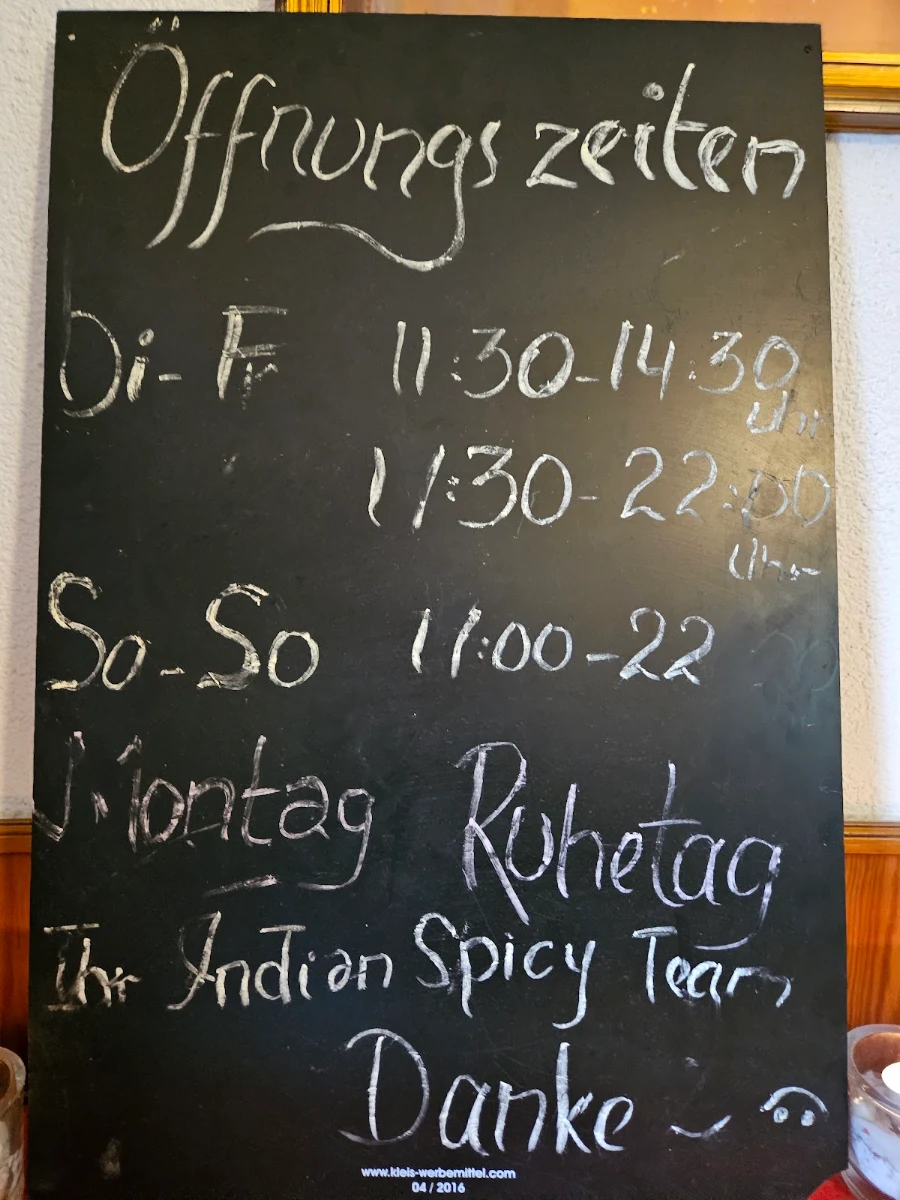 Öffnungszeiten
Di- Fr 11:30-14:30
Uhr
11:30-22:00
Uhr
So-So 11:00-22
Montag Ruhetag
Ihr Indian Spicy Team
Danke
www.kleis-werbemittel.com
04 / 2016